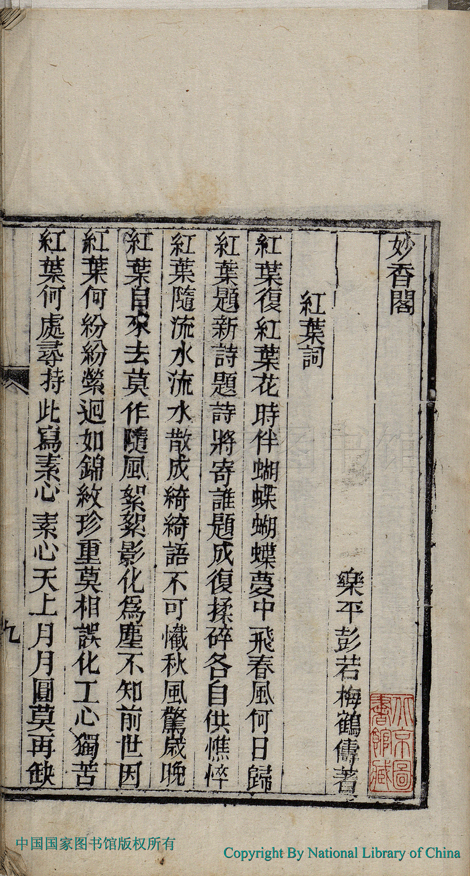 妙香閣
樂平彭若梅鶴儔著
紅葉詞
紅葉復紅葉花時伴蝴蝶蝴蝶夢中飛春風何日歸
紅葉題新詩題詩將寄誰題成復揉碎各自供憔悴
紅葉隨流水流水散成綺綺語不可懺秋風驚歲晚
紅葉自來去莫作隨風絮絮影化為塵不知前世因
紅葉何紛紛縈迴如錦紋珍重莫相誤化工心獨苦
紅葉何處尋持此寫素心素心天上月月圓莫再缺
北京圖
書館藏
中国国家图书馆版权所有
Copyright By National Library of China